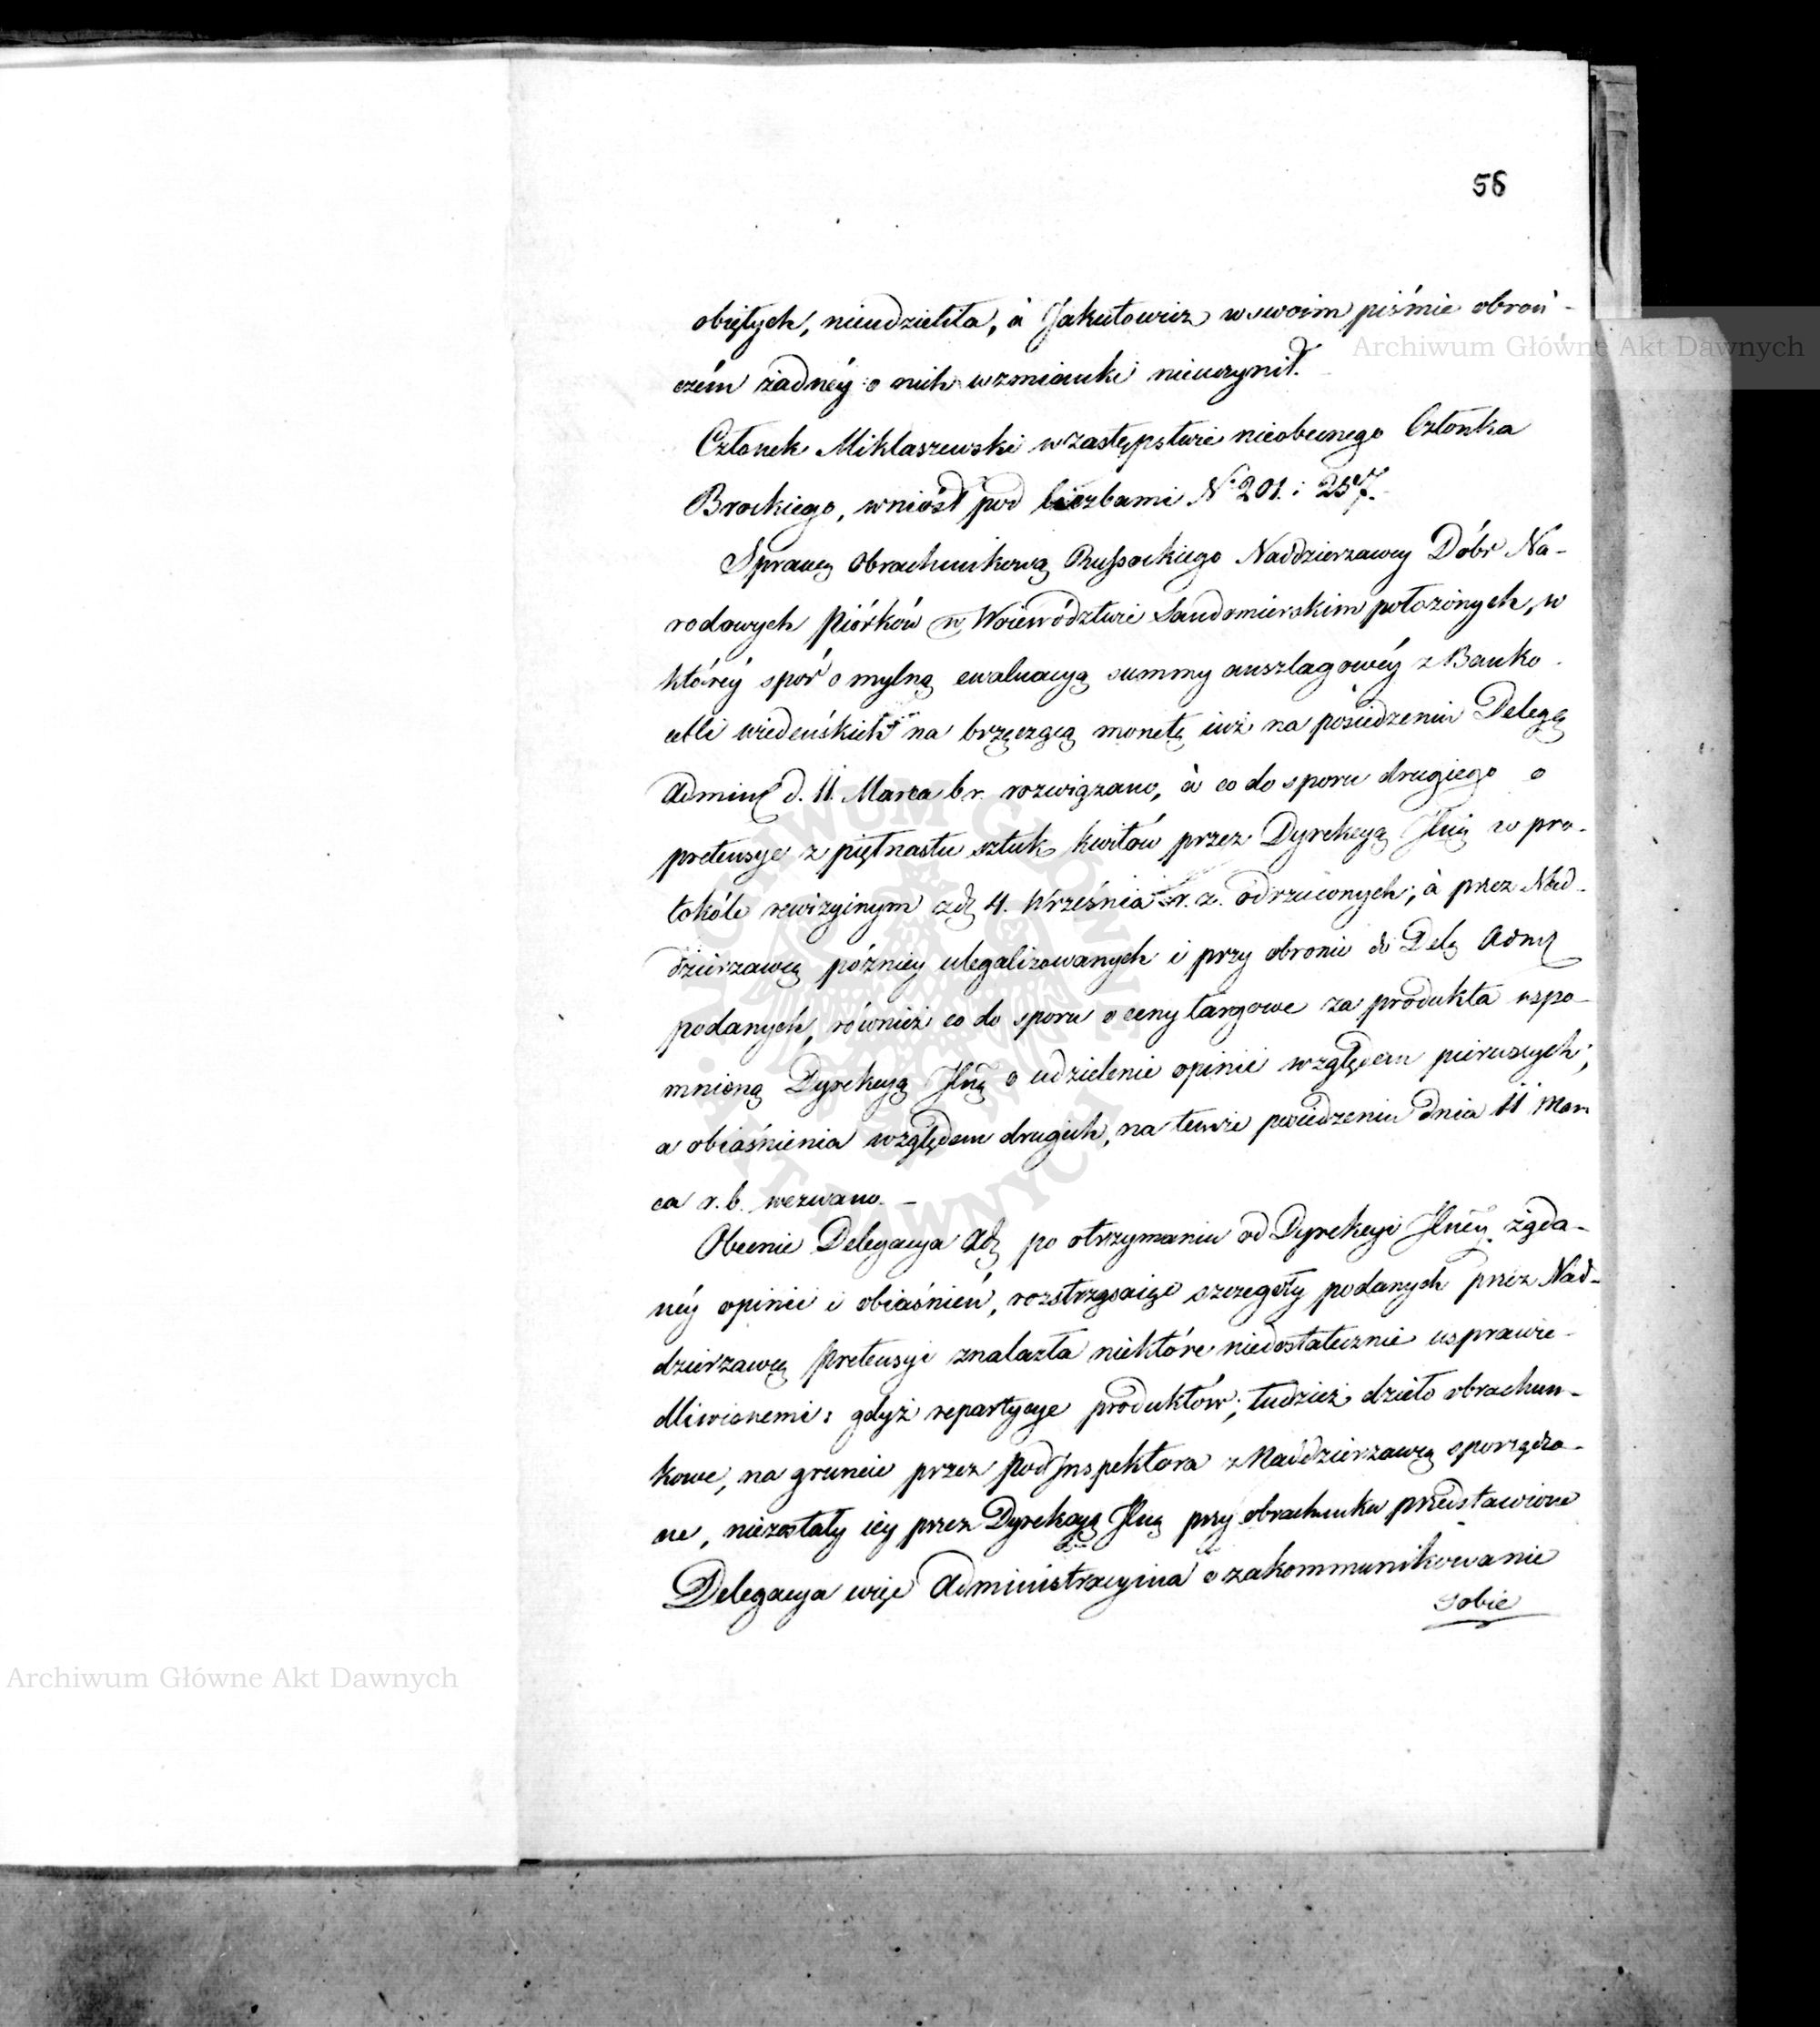 56
obiętych, nieudzieliła, à Jakutowicz w swoim piśmie obroń-
czém żadnéy o nich wzmianki nieuczynił.
Członek Miklaszewski w zastępstwie nieobecnego Członka
Brockiego, wniósł pod liczbami No 201. i 257.
Sprawę Obrachunkową Russockiego Naddzierzawcy Dóbr Na-
rodowych Piórków w Woiewództwie Sandomierskim położonych, w
któréy spór o mylną ewaluacyą summy auszlagowéy z Banko-
cetli wiedeńskich na brzęczącą monetę iuż na posiedzeniu Delegę
Adminę d. 11. Marca b.r. rozwiązano, à co do sporu drugiego o
pretensye z piętnastu sztuk kwitów przez Dyrekcyą Jlną w pro-
tokóle rewizyinym zdę 4. Września r. z. odrzuconych; à przez Nad-
dzierzawcę późniey ulegalizowanych i przy obronie do Delę Admę
podanych, również co do sporu o ceny targowe za produkta wspo-
mnioną Dyrekcyą Jlną o udzielenie opinii względem pierwszych;
a obiaśnienia względem drugich, na temże posiedzeniu dnia 11 Mar-
ca r. b. wezwano. –
Obecnie Delegacya Adę po otrzymaniu od Dyrekcyi Jlnéy żąda-
néy opinii i obiaśnień, roztrząsaiąc szczegóły podanych przez Nad-
dzierzawcę pretensyi znalazła niektóre niedostatecznie usprawie-
dliwionemi: gdyż repartycye produktów; tudzież dzieło obrachun-
kowe, na gruncie przez PodJnspektora z Naddzierzawcą sporządzo-
ne, niezostały iéy przez Dyrekcyą Jlną przy obrachunku przedstawione
Delegacya więc Administracyina o zakommunikowanie
sobie
Archiwum Główne Akt Dawnych
Archiwum Główne Akt Dawnych
ARCHIWUM GŁÓWNE AKT DAWNYCH